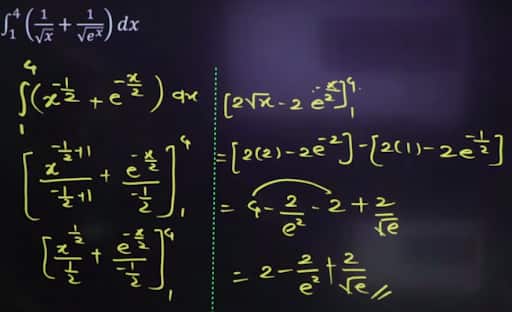 ∫₁⁴ (1/√x + 1/√eˣ) dx
∫₁⁴ (x^(-1/2) + e^(-x/2)) dx
[x^(-1/2+1)/(-1/2+1) + e^(-x/2)/(-1/2)]₁⁴
[x^(1/2)/(1/2) + e^(-x/2)/(-1/2)]₁⁴
[2√x - 2e^(-x/2)]₁⁴
= [2(2) - 2e^(-2)] - [2(1) - 2e^(-1/2)]
= 4 - 2/e² - 2 + 2/√e
= 2 - 2/e² + 2/√e //